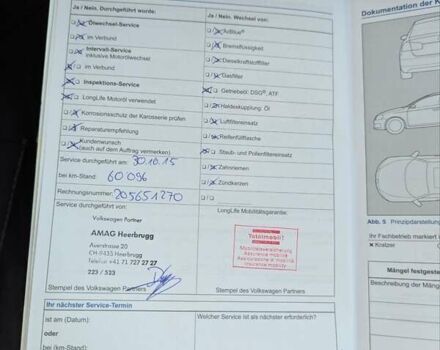 Ja / Nein. Durchgeführt wurde:
Ölwechsel-Service
im Verbund
Intervall-Service
inklusive Motorölwechsel
im Verbund
Inspektions-Service
LongLife Motoröl verwendet
Korrosionsschutz der Karosserie prüfen
Reparaturempfehlung
Kundenwunsch
(auch auf dem Auftrag vermerken)
Service durchgeführt am: 30.10.15
bei km-Stand: 60096
Rechnungsnummer: 205651270
Service durchgeführt von:
Volkswagen Partner
AMAG Heerbrugg
Auerstrasse 20
CH-9435 Heerbrugg
Telefon +41 71 727 27 27
223 / 523
Stempel des Volkswagen Partners
Ihr nächster Service-Termin
ist am (Datum):
oder
bei (km-Stand):
Ja / Nein. Wechsel von:
AdBlue®
Bremsflüssigkeit
Dieselkraftstofffilter
Gasfilter
Getriebeöl: DSG®, ATF
Haldexkupplung: Öl
Luftfiltereinsatz
Reifenfüllflasche
Staub- und Pollenfiltereinsatz
Zahnriemen
Zündkerzen
LongLife Mobilitätsgarantie:
Totalmobil!
Mobilitätsversicherung
Assurance mobilité
Assicurazione di mobilità
Insurance mobility
Stempel des Volkswagen Partners
Welcher Service ist als nächster erforderlich?
Dokumentation der K
Abb. 5 Prinzipdarstellun
Ihr Fachbetrieb markiert i
Kratzer
Mängel festgeste
Beschreibung der Mäng